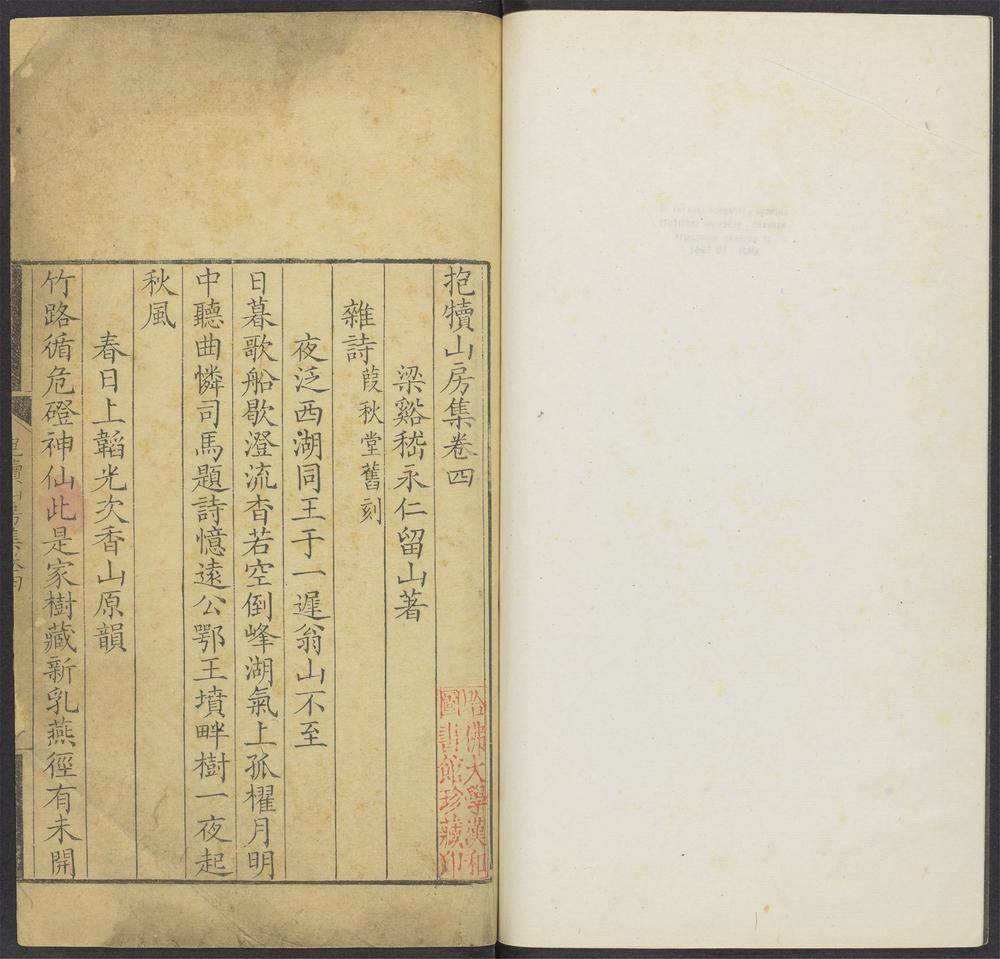 抱犢山房集卷四
梁谿嵇永仁留山著
雜詩葭秋堂舊刻
夜泛西湖同王于一遲翁山不至
日暮歌船歇澄流杳若空倒峰湖氣上孤櫂月明
中聽曲憐司馬題詩憶遠公鄂王墳畔樹一夜起
秋風
春日上韜光次香山原韻
竹路循危磴神仙此是家樹藏新乳燕徑有未開
哈佛大學漢和
圖書館珍藏印